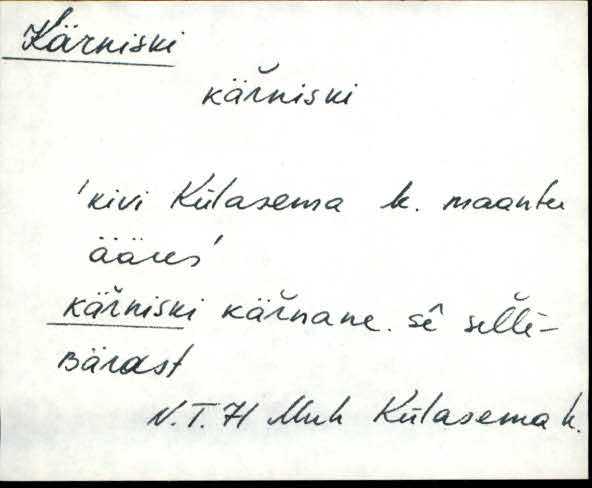 Kärniski
kär̆niski
'kivi Külasema k. maantee
ääres'
kär̆niski kär̆nane. sê selle-
pärast
N.T. 71 Muh Külasema k.